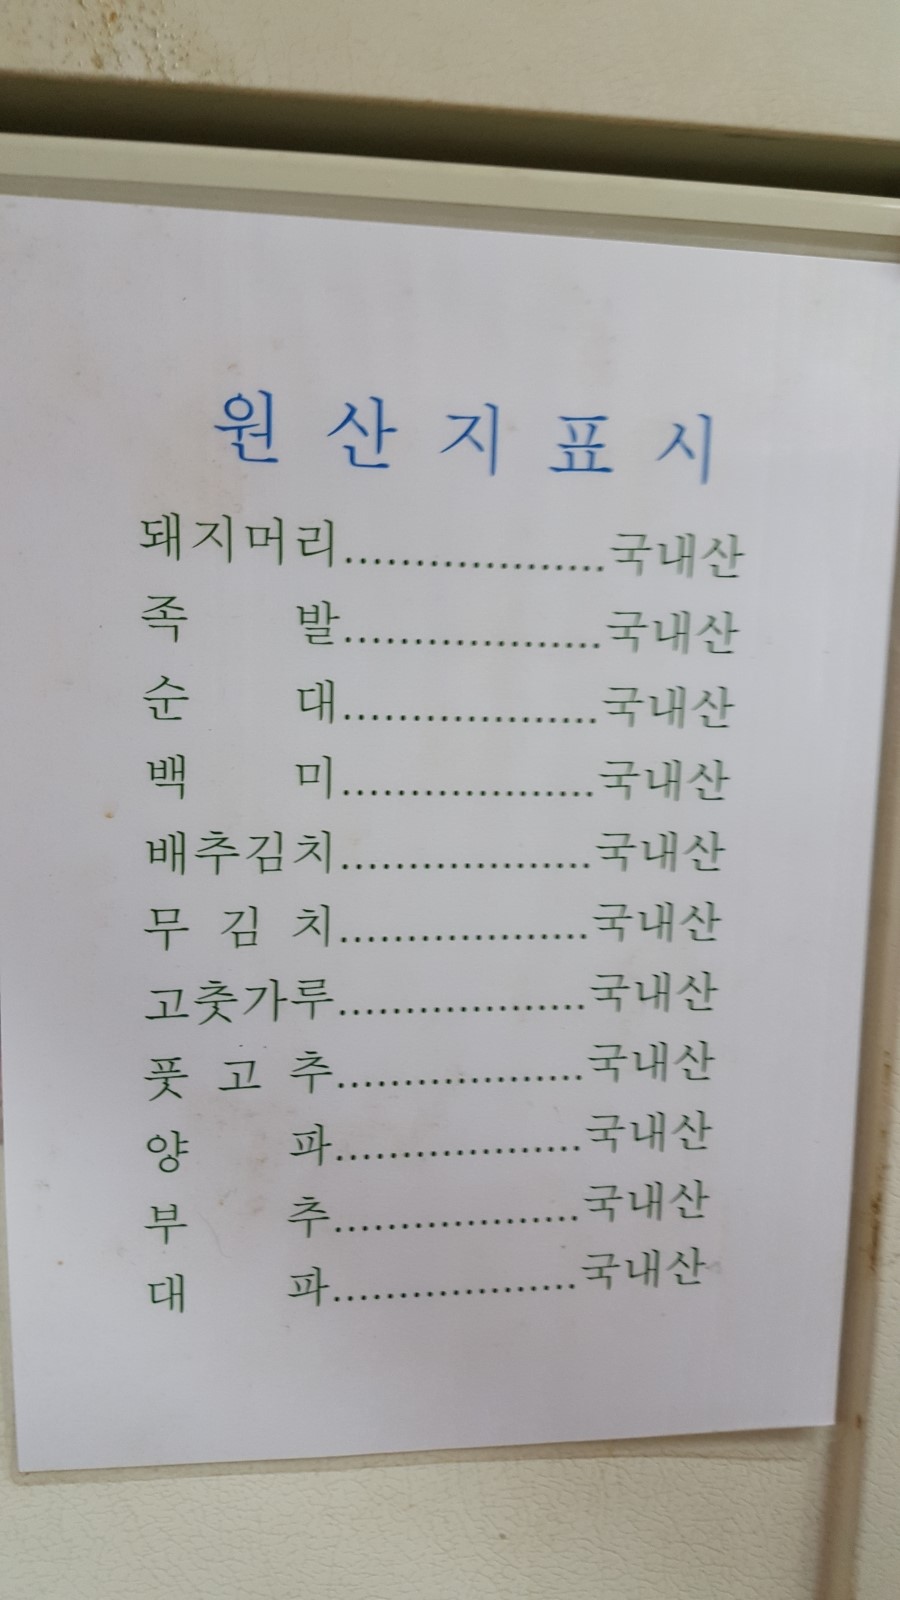 원 산 지 표 시
돼지머리...................국내산
족 발...................국내산
순 대...................국내산
백 미...................국내산
배추김치...................국내산
무 김 치...................국내산
고춧가루...................국내산
풋 고 추...................국내산
양 파...................국내산
부 추...................국내산
대 파...................국내산